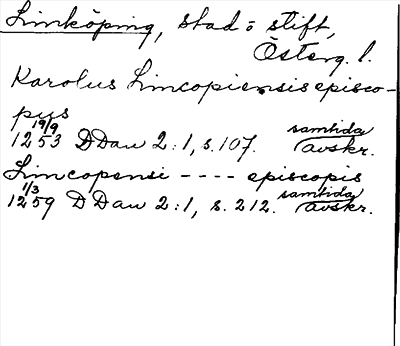 Linköping, stad o stift,
Österg. l.
Karolus Lincopiensis episco-
pus
19/9
1253 DDan 2:1, s. 107. samtida avskr.
Lincopensi ---- episcopis
1/3
1259 DDan 2:1, s. 212. samtida avskr.